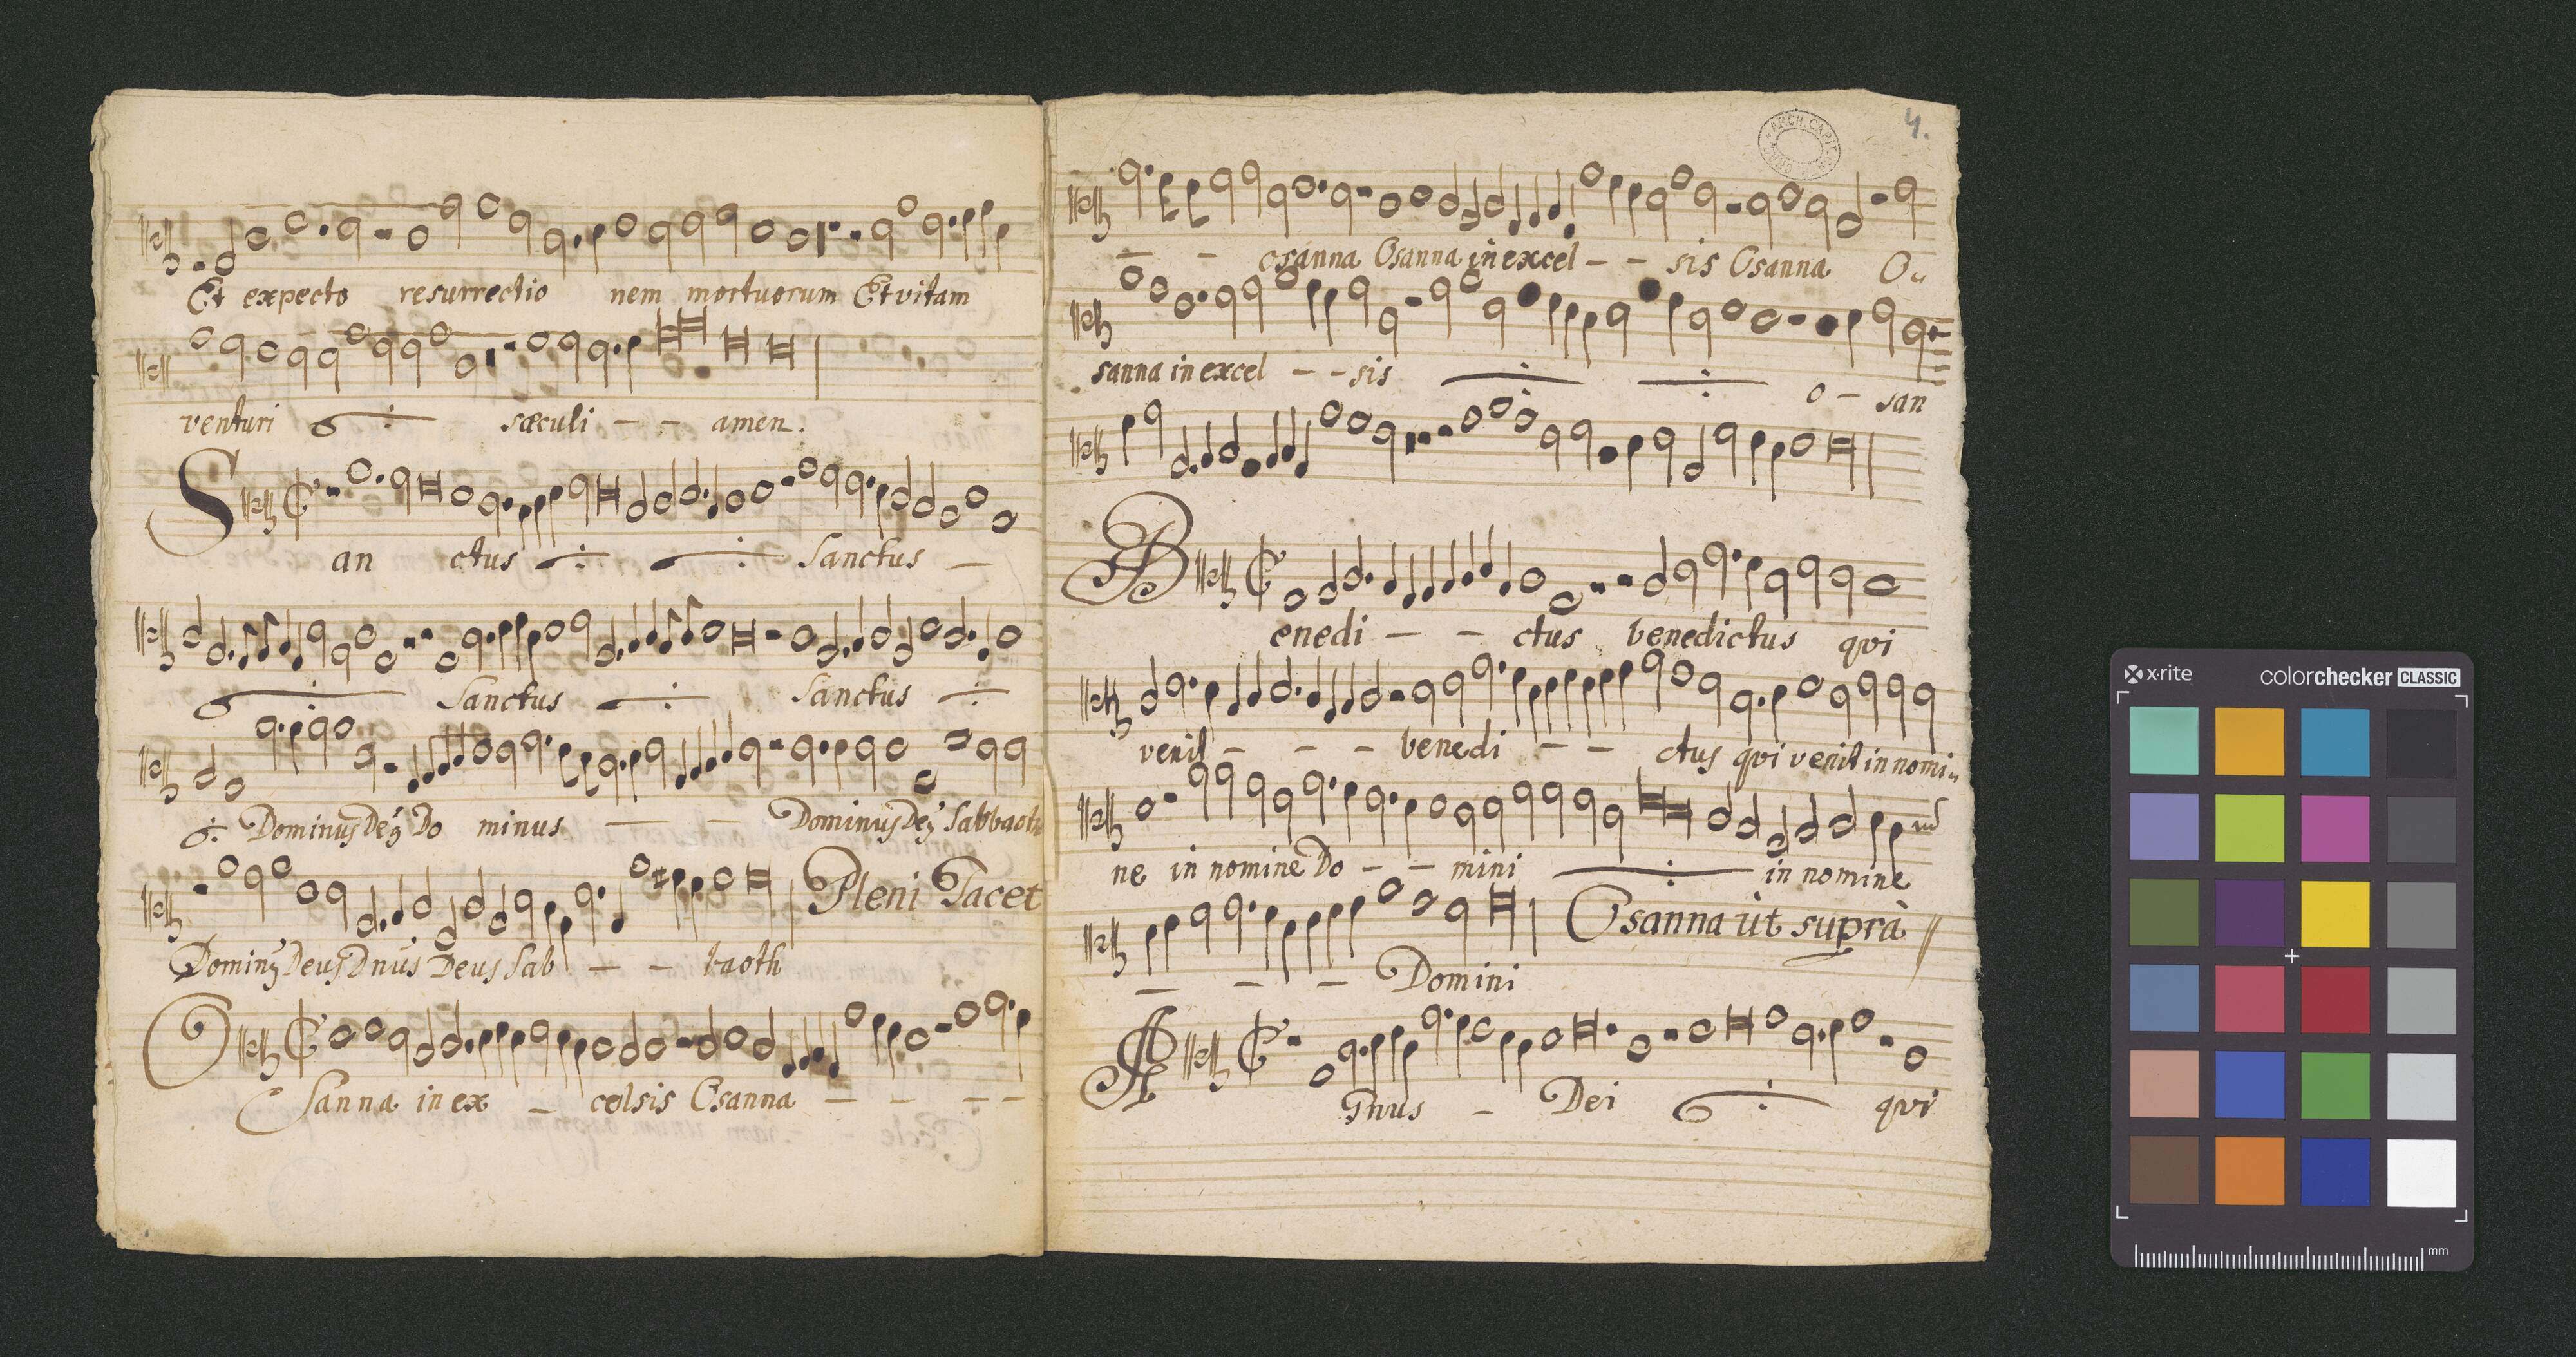 Et expecto resurrectio nem mortuorum Et vitam
venturi sæculi - - amen.
San ctus Sanctus -
Sanctus Sanctus
Dominus Deus Do minus - - Dominus Deus Sabbaoth
Pleni Tacet
Dominus Deus Dnus Deus Sab - - baoth
O Sanna in ex - celsis Osanna - - - -
4.
ARCH. CAP
- - osanna Osanna in excel - - sis Osanna O
sanna in excel - - sis o - san
Benedi - - ctus benedictus qvi
venit - - - benedi - - ctus qvi venit in nomi
ne in nomine Do - - mini in nomine
Osanna ùt suprà
- - - Domini
Agnus - Dei qvi
x·rite colorchecker CLASSIC
mm